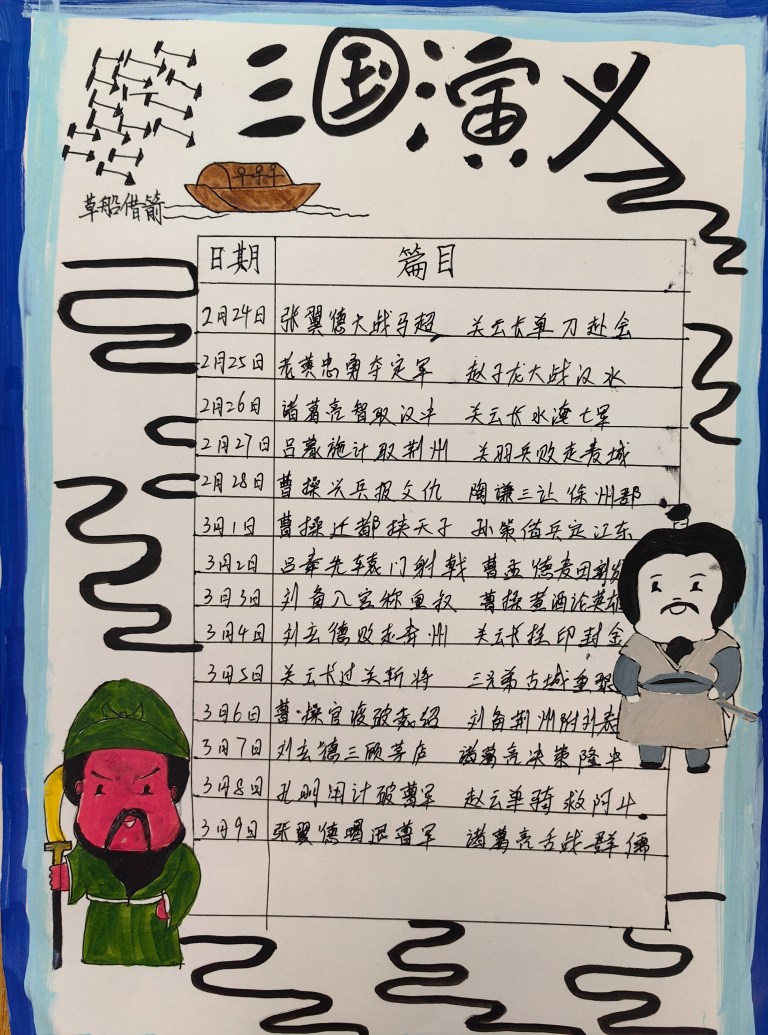 三国演义
草船借箭
日期 篇目
2月24日 张翼德大战马超 关云长单刀赴会
2月25日 老黄忠勇夺定军 赵子龙大战汉水
2月26日 诸葛亮智取汉中 关云长水淹七军
2月27日 吕蒙施计取荆州 关羽兵败走麦城
2月28日 曹操兴兵报父仇 陶谦三让徐州郡
3月1日 曹操迁都挟天子 孙策借兵定江东
3月2日 吕奉先辕门射戟 曹孟德麦田割发
3月3日 刘备入宫称皇叔 曹操煮酒论英雄
3月4日 刘玄德败走徐州 关云长挂印封金
3月5日 关云长过关斩将 三兄弟古城重聚
3月6日 曹操官渡破袁绍 刘备荆州附刘表
3月7日 刘玄德三顾茅庐 诸葛亮决策隆中
3月8日 孔明用计破曹军 赵云单骑救阿斗
3月9日 张翼德喝退曹军 诸葛亮舌战群儒